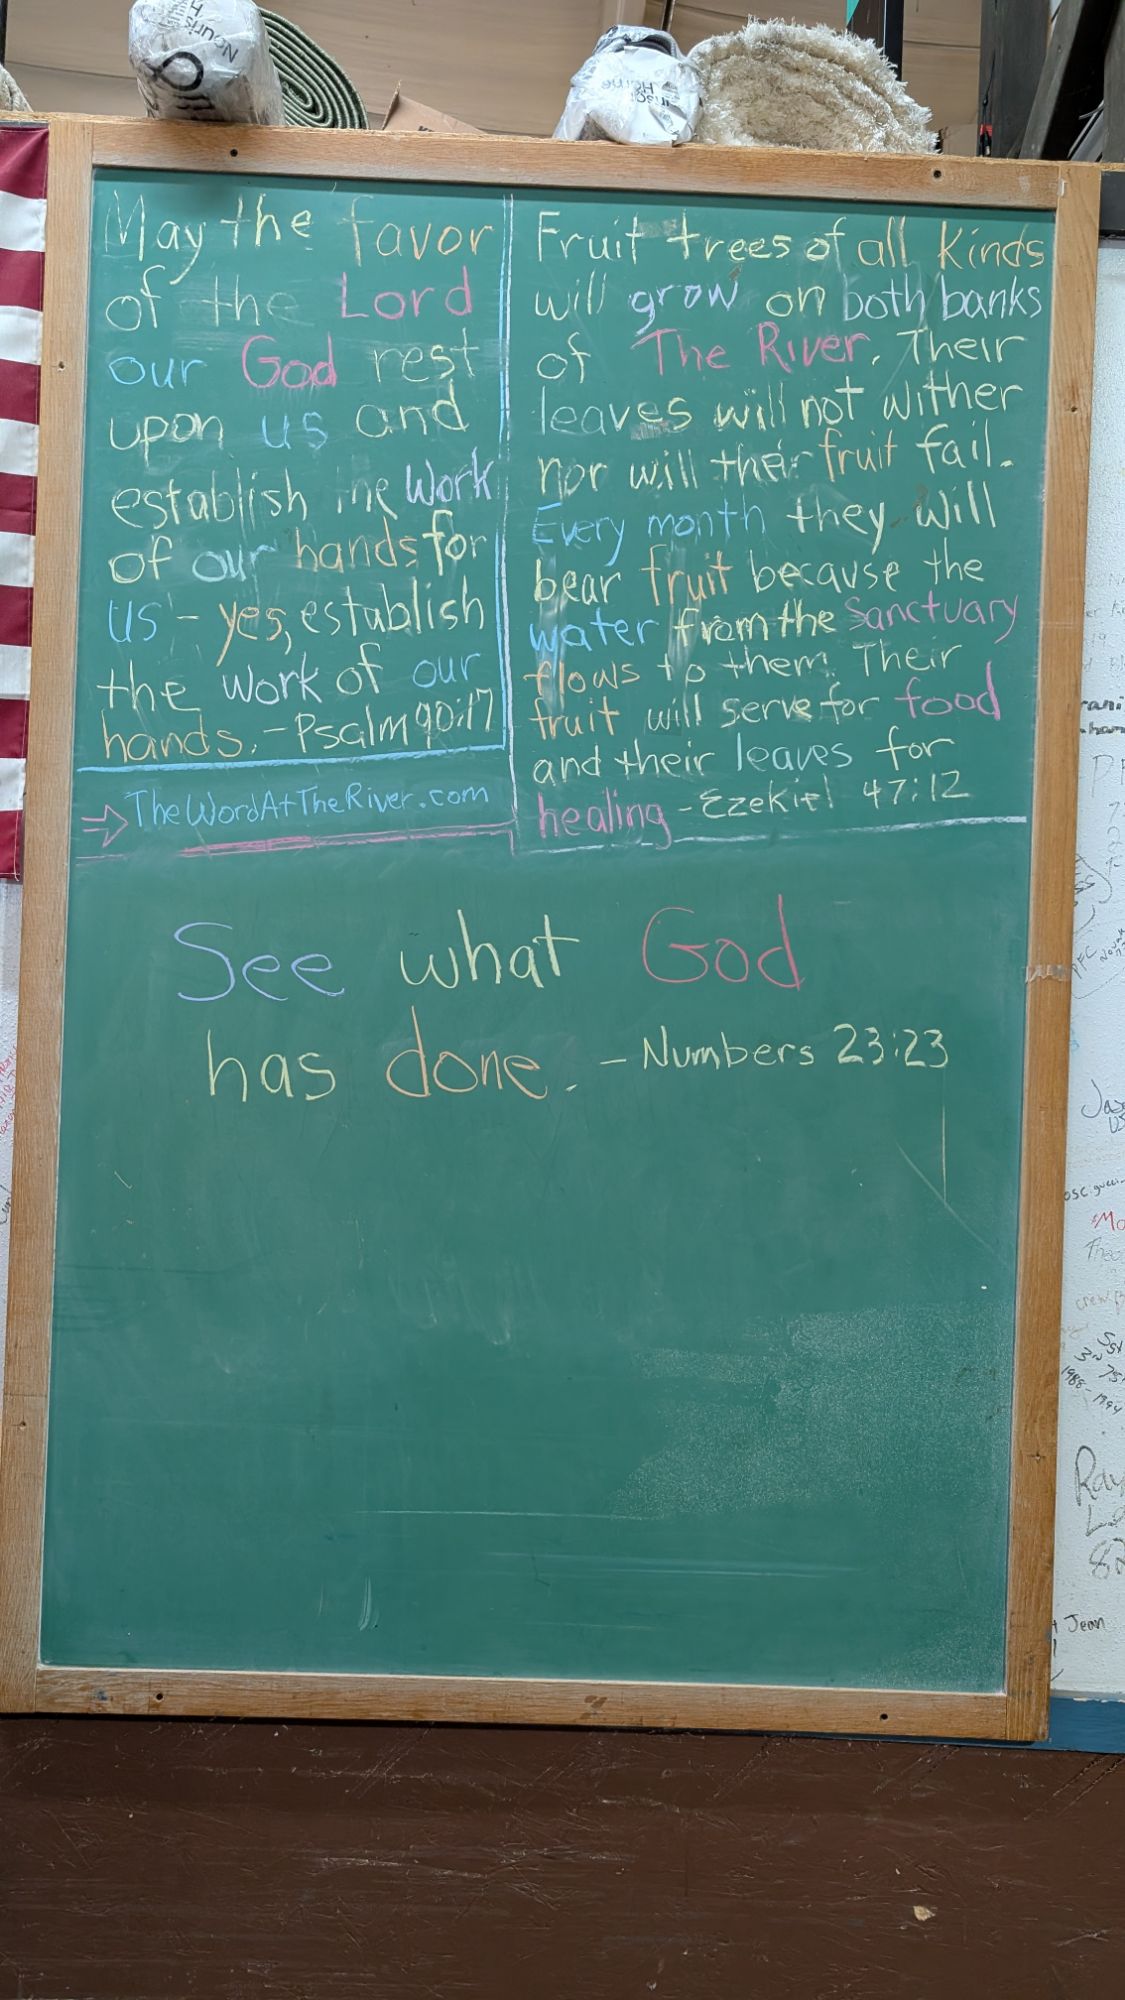 Nourish
May the favor
of the Lord
our God rest
upon us and
establish the Work
of our hands for
us - yes, establish
the work of our
hands. - Psalm 90:17
TheWordAtTheRiver.com
Fruit trees of all Kinds
will grow on both banks
of The River. Their
leaves will not wither
nor will their fruit fail.
Every month they will
bear fruit because the
water from the Sanctuary
flows to them. Their
fruit will serve for food
and their leaves for
healing - Ezekiel 47:12
See what God
has done. - Numbers 23:23
PFC
1988-1994
Ray
Jean